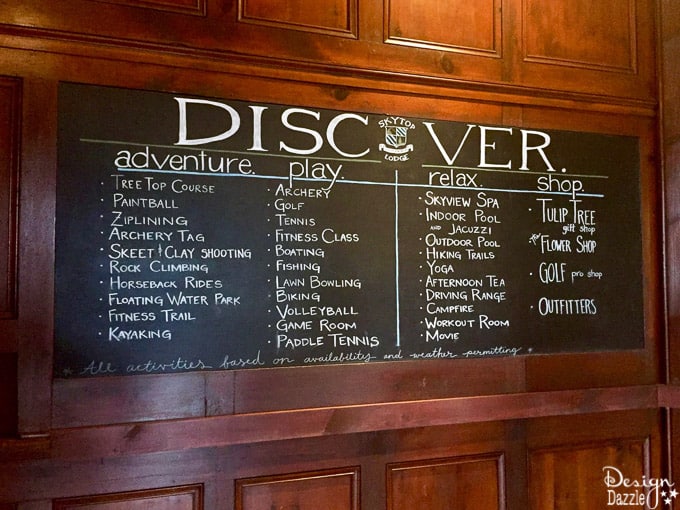 DISCOVER.
SKYTOP
LODGE
adventure.
· TREE TOP COURSE
· PAINTBALL
· ZIPLINING
· ARCHERY TAG
· SKEET & CLAY SHOOTING
· ROCK CLIMBING
· HORSEBACK RIDES
· FLOATING WATER PARK
· FITNESS TRAIL
· KAYAKING
play.
· ARCHERY
· GOLF
· TENNIS
· FITNESS CLASS
· BOATING
· FISHING
· LAWN BOWLING
· BIKING
· VOLLEYBALL
· GAME ROOM
· PADDLE TENNIS
relax.
· SKYVIEW SPA
· INDOOR POOL
AND JACUZZI
· OUTDOOR POOL
· HIKING TRAILS
· YOGA
· AFTERNOON TEA
· DRIVING RANGE
· CAMPFIRE
· WORKOUT ROOM
· MOVIE
shop.
· TULIP TREE
gift shop
· FLOWER SHOP
· GOLF pro shop
· OUTFITTERS
* All activities based on availability and weather permitting *
Design
Dazzle